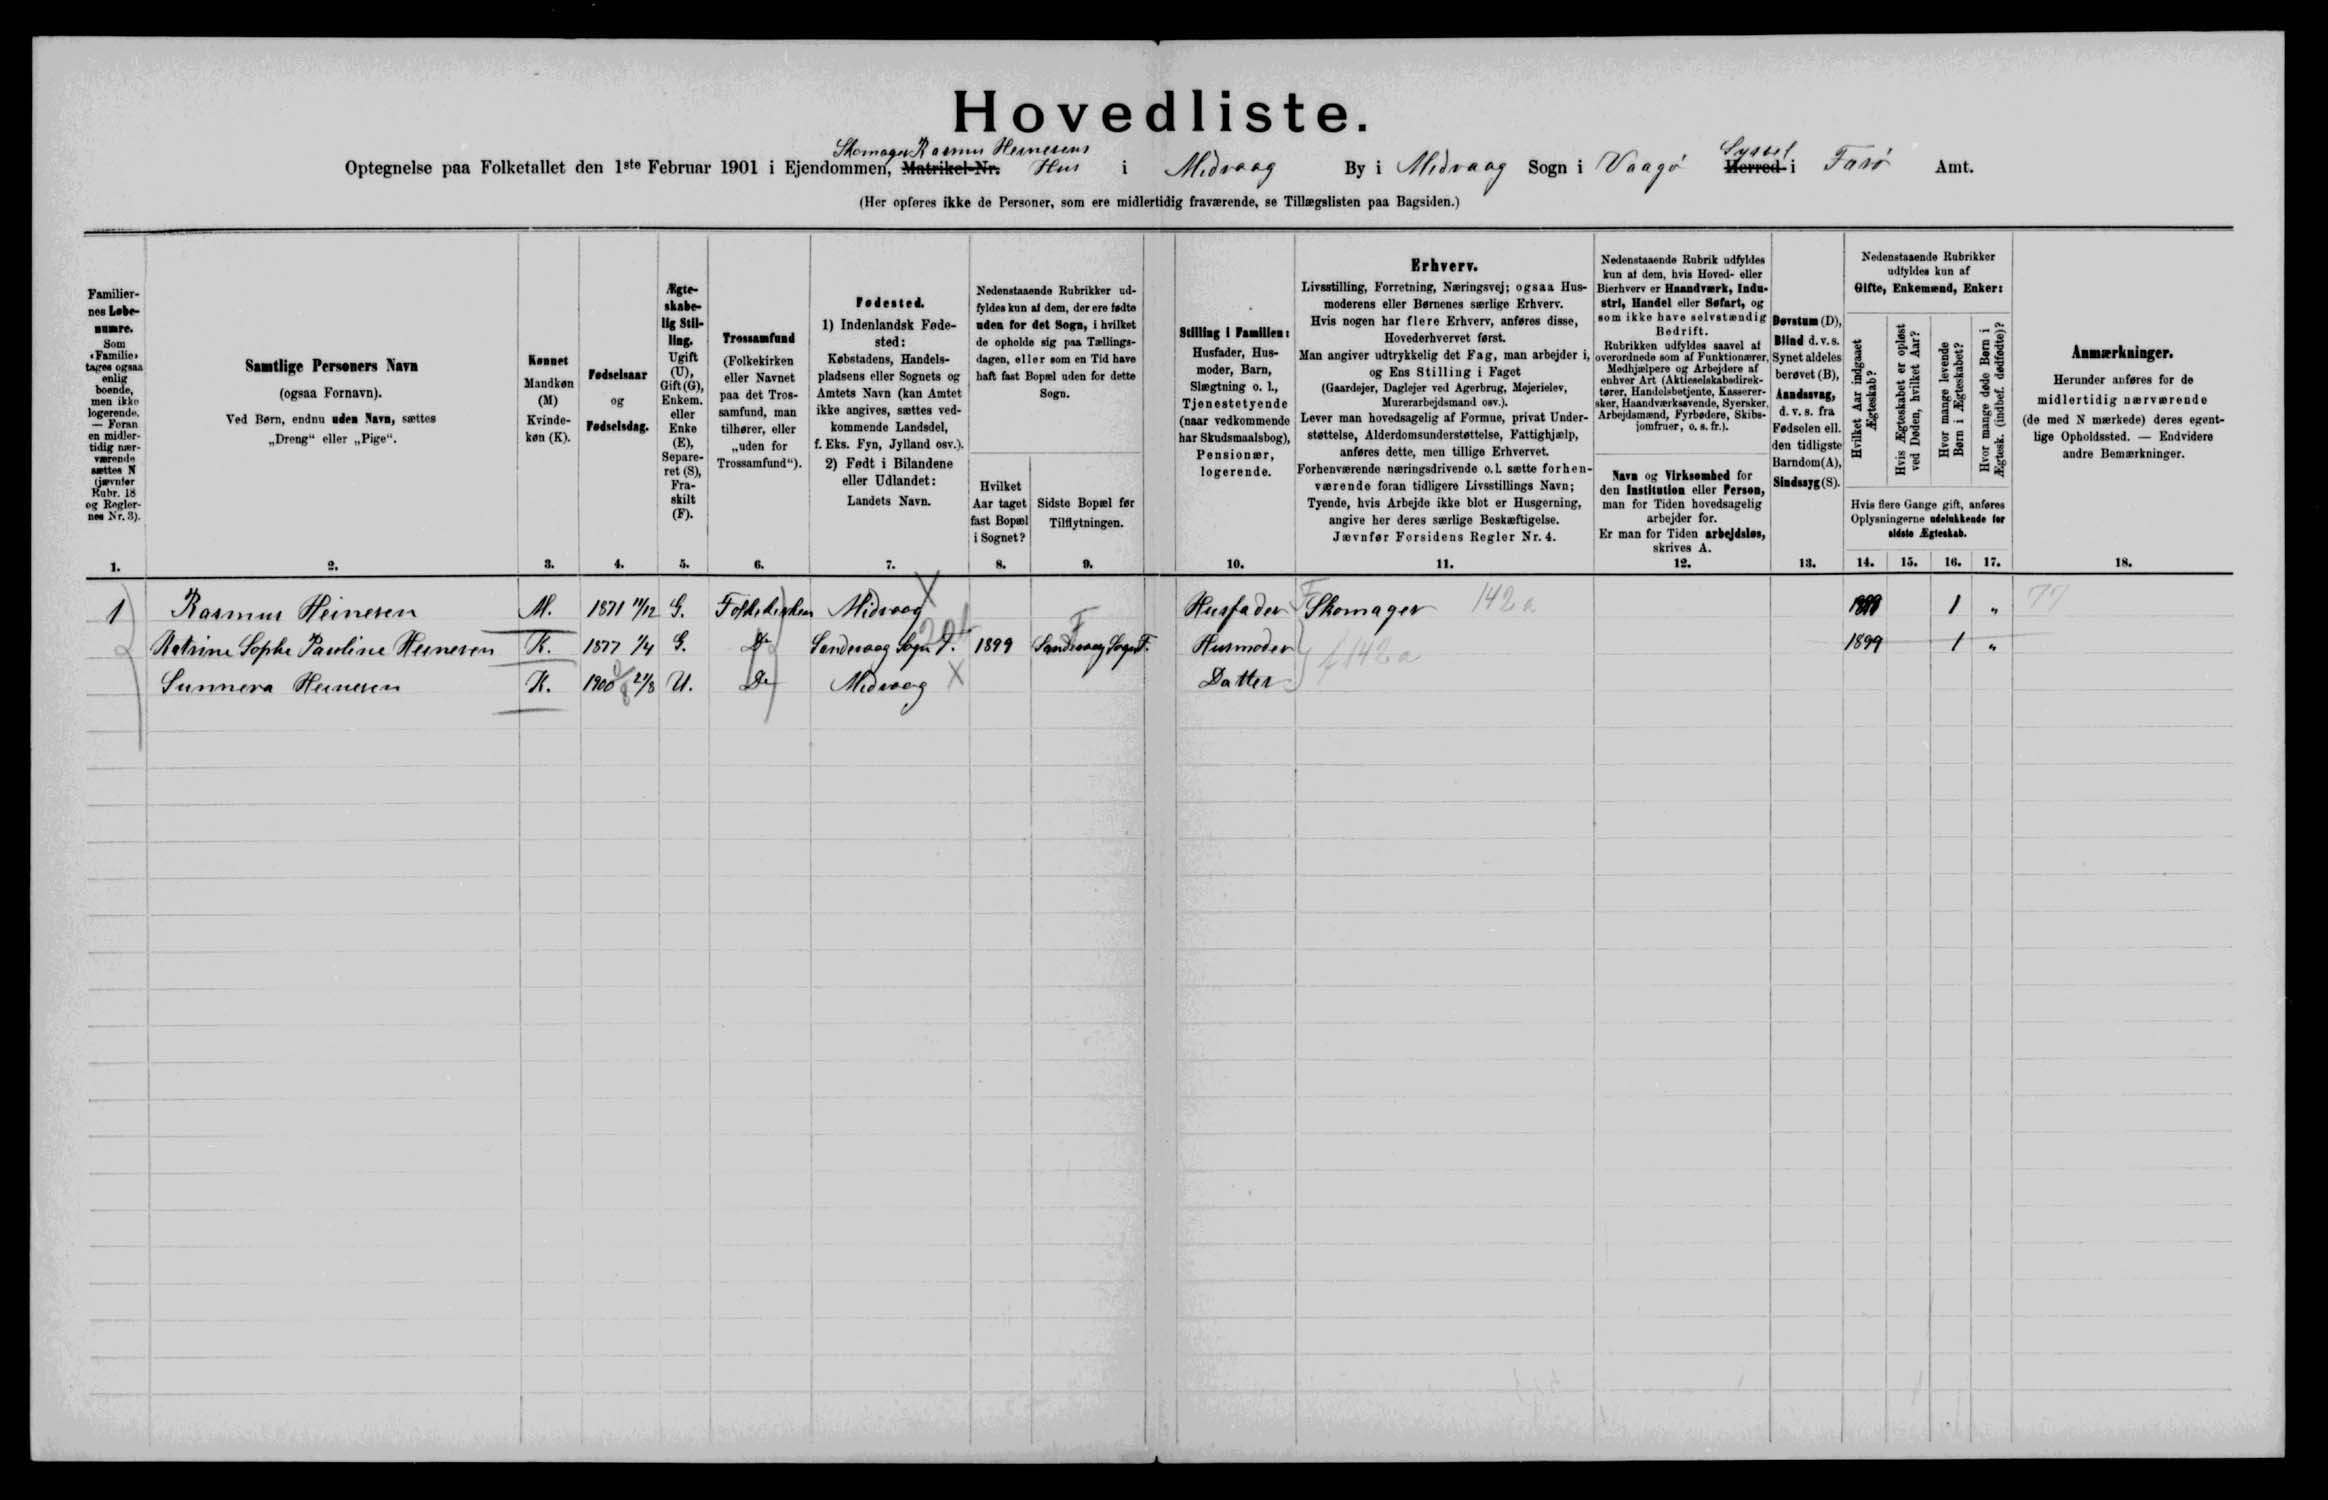 Hovedliste.
Skomager Rasmus Heinesens
Optegnelse paa Folketallet den 1ste Februar 1901 i Ejendommen, Matrikel-Nr. Hus i Midvaag By i Midvaag Sogn i Vaagø Herred Syssel i Færø Amt.
(Her opføres ikke de Personer, som ere midlertidig fraværende, se Tillægslisten paa Bagsiden.)
Familiernes Løbenumre.
Som «Familie» tages ogsaa enlig boende, men ikke logerende. — Foran en midlertidig nærværende sættes N (jævnfør Rubr. 18 og Reglernes Nr. 3).
Samtlige Personers Navn
(ogsaa Fornavn).
Ved Børn, endnu uden Navn, sættes
„Dreng“ eller „Pige“.
Kønnet
Mandkøn (M)
Kvindekøn (K).
Fødselsaar
og
Fødselsdag.
Ægteskabelig Stilling.
Ugift (U), Gift (G), Enkem. eller Enke (E), Separeret (S), Fraskilt (F).
Trossamfund
(Folkekirken eller Navnet paa det Trossamfund, man tilhører, eller „uden for Trossamfund“).
Fødested.
1) Indenlandsk Fødested:
Købstadens, Handelspladsens eller Sognets og Amtets Navn (kan Amtet ikke angives, sættes vedkommende Landsdel, f. Eks. Fyn, Jylland osv.).
2) Født i Bilandene eller Udlandet:
Landets Navn.
Nedenstaaende Rubrikker udfyldes kun af dem, der ere fødte uden for det Sogn, i hvilket de opholde sig paa Tællingsdagen, eller som en Tid have haft fast Bopæl uden for dette Sogn.
Hvilket Aar taget fast Bopæl i Sognet?
Sidste Bopæl før Tilflytningen.
Stilling i Familien:
Husfader, Husmoder, Barn, Slægtning o. l., Tjenestetyende (naar vedkommende har Skudsmaalsbog), Pensionær, logerende.
Erhverv.
Livsstilling, Forretning, Næringsvej; ogsaa Husmoderens eller Børnenes særlige Erhverv.
Hvis nogen har flere Erhverv, anføres disse, Hovederhvervet først.
Man angiver udtrykkelig det Fag, man arbejder i, og Ens Stilling i Faget
(Gaardejer, Daglejer ved Agerbrug, Mejerielev, Murerarbejdsmand osv.).
Lever man hovedsagelig af Formue, privat Understøttelse, Alderdomsunderstøttelse, Fattighjælp, anføres dette, men tillige Erhvervet.
Forhenværende næringsdrivende o. l. sætte forhenværende foran tidligere Livsstillings Navn;
Tyende, hvis Arbejde ikke blot er Husgerning, angive her deres særlige Beskæftigelse.
Jævnfør Forsidens Regler Nr. 4.
Nedenstaaende Rubrik udfyldes kun af dem, hvis Hoved- eller Bierhverv er Haandværk, Industri, Handel eller Søfart, og som ikke have selvstændig Bedrift.
Rubrikken udfyldes saavel af overordnede som af Funktionærer, Medhjælpere og Arbejdere af enhver Art (Aktieselskabsdirektører, Handelsbetjente, Kasserersker, Haandværkssvende, Syersker, Arbejdsmænd, Fyrbødere, Skibsjomfruer, o. s. fr.).
Navn og Virksomhed for den Institution eller Person, man for Tiden hovedsagelig arbejder for.
Er man for Tiden arbejdsløs, skrives A.
Døvstum (D), Blind d. v. s. Synet aldeles berøvet (B), Aandssvag, d. v. s. fra Fødselen ell. den tidligste Barndom (A), Sindssyg (S).
Nedenstaaende Rubrikker udfyldes kun af Gifte, Enkemænd, Enker:
Hvilket Aar indgaaet Ægteskab?
Hvis Ægteskabet er opløst ved Døden, hvilket Aar?
Hvor mange levende Børn i Ægteskabet?
Hvor mange døde Børn i Ægtesk. (indbef. dødfødte)?
Hvis flere Gange gift, anføres Oplysningerne udelukkende for sidste Ægteskab.
Anmærkninger.
Herunder anføres for de midlertidig nærværende (de med N mærkede) deres egentlige Opholdssted. — Endvidere andre Bemærkninger.
1. 2. 3. 4. 5. 6. 7. 8. 9. 10. 11. 12. 13. 14. 15. 16. 17. 18.
1 Rasmus Heinesen M. 1871 11/12 G. Folkekirken Midvaag X Husfader Skomager 142 a 1899 1 „ 77
Katrine Sophe Pauline Heinesen K. 1877 1/4 G. Do Sandevaag Sogn F. 1899 Sandevaag Sogn F. Husmoder f 142 a 1899 1 „
Sunneva Heinesen K. 1900 21/8 U. Do Midvaag X Datter